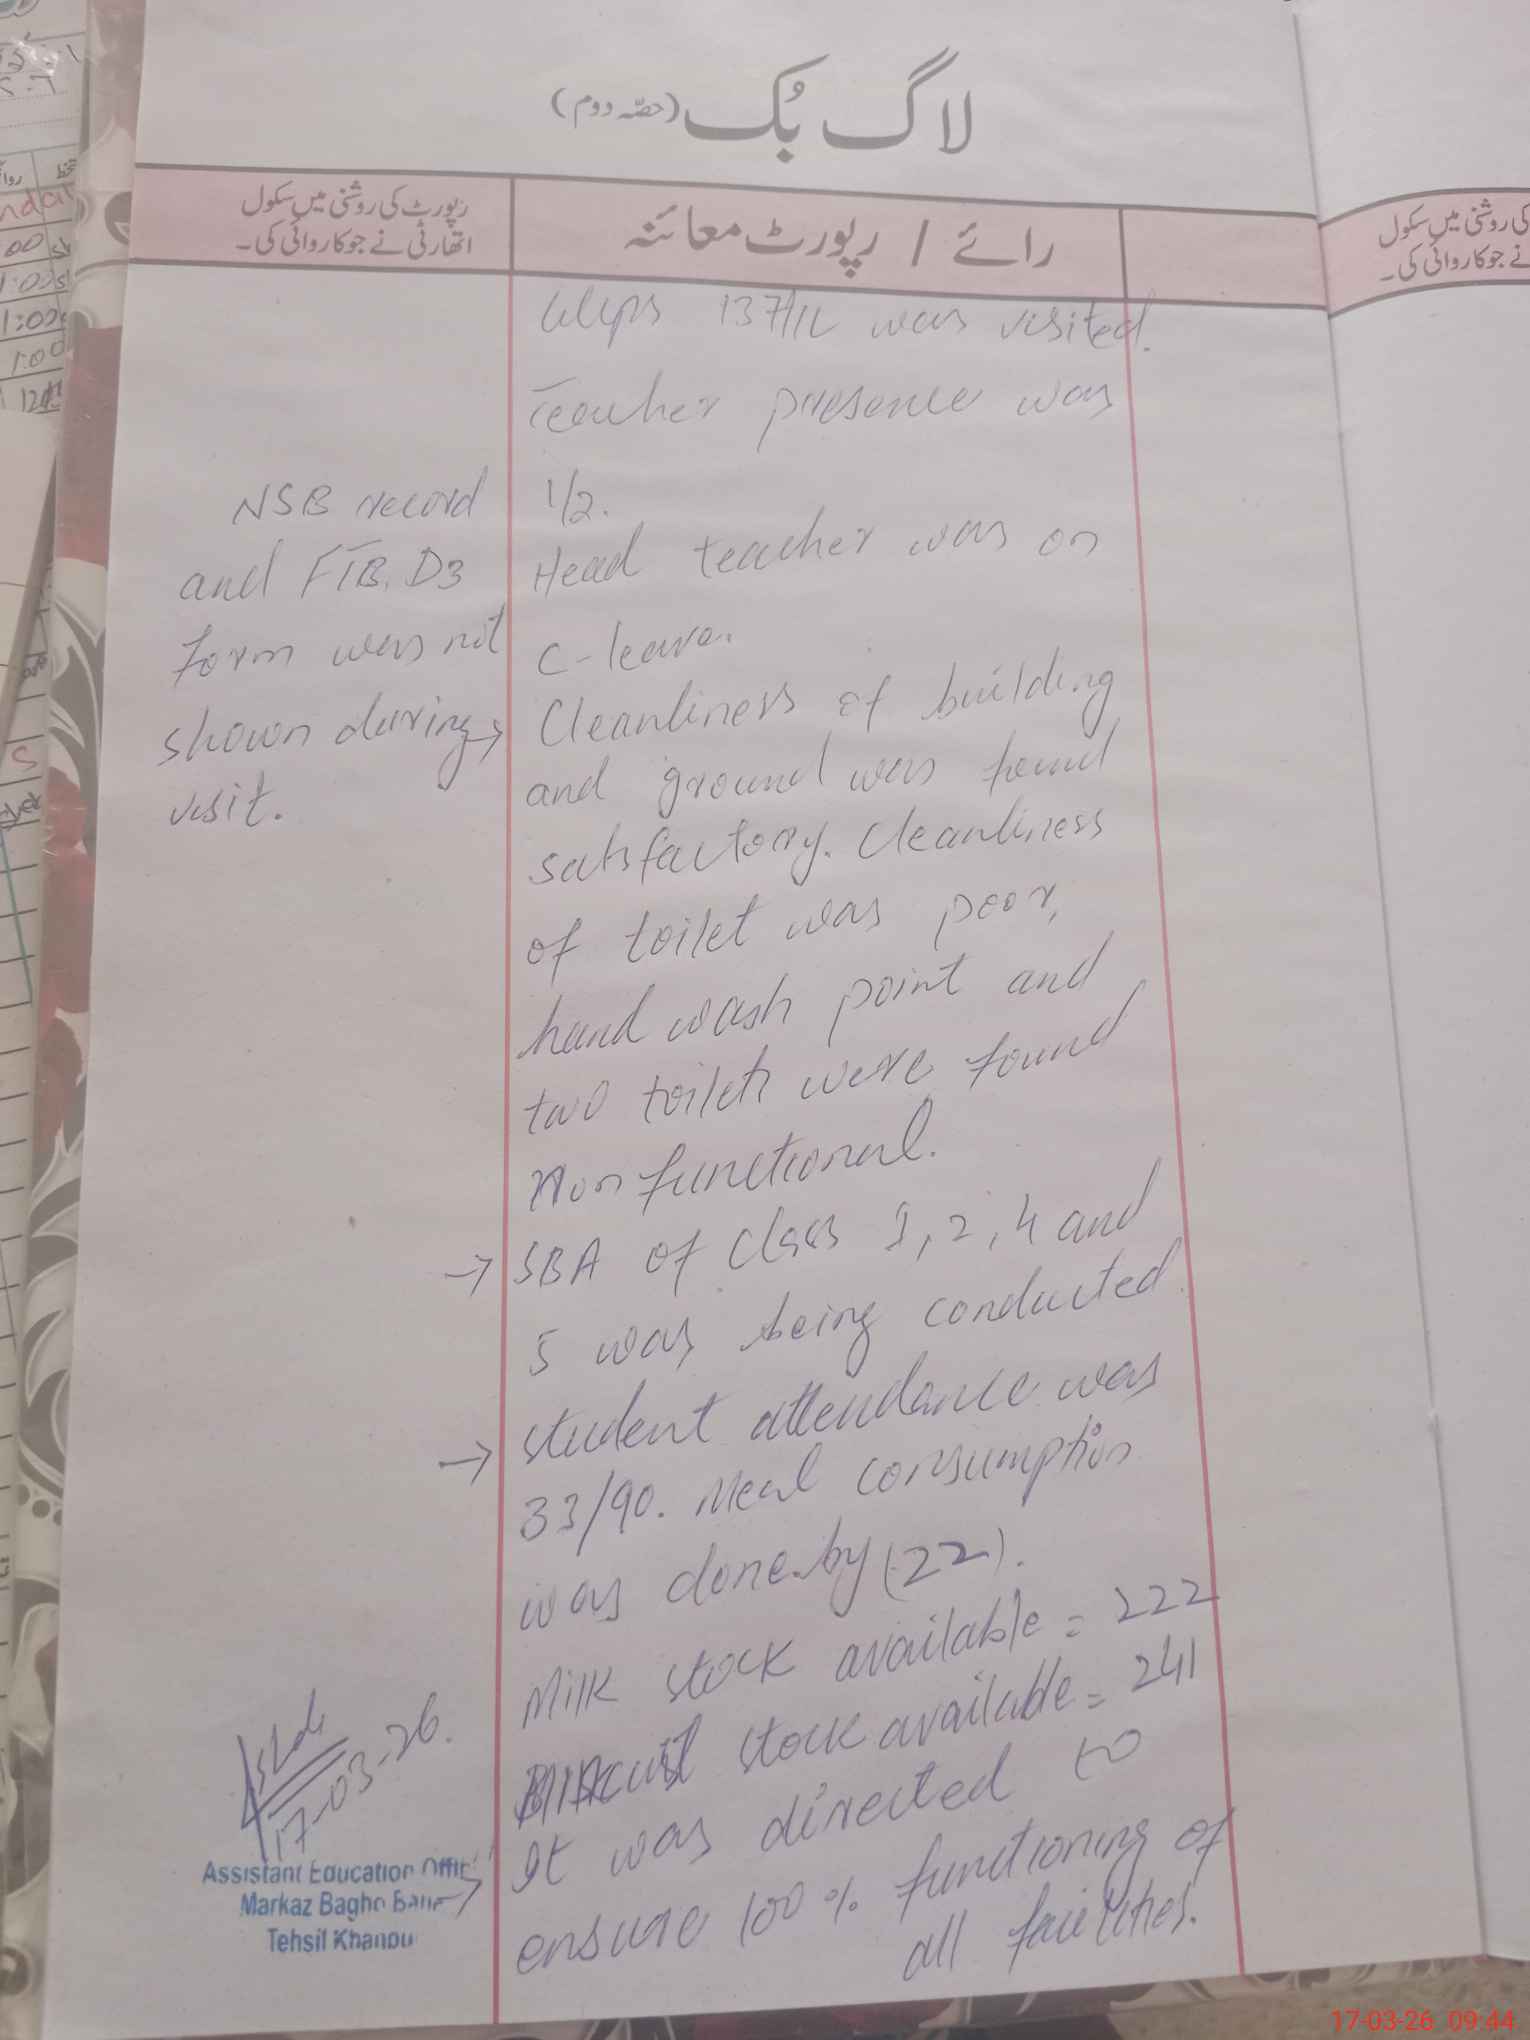 لاگ بُک (حصّہ دوم)
رائے / رپورٹ معائنہ
رپورٹ کی روشنی میں سکول
اتھارٹی نے جو کاروائی کی۔
137/1L was visited.
Teacher presence was
1/2.
Head teacher was on
C-leave.
Cleanliness of building
and ground was found
satisfactory. Cleanliness
of toilet was poor,
hand wash point and
two toilets were found
Non functional.
→ SBA of class 1, 2, 4 and
5 was being conducted.
→ student attendance was
33/90. Meal consumption
was done by (22).
Milk stock available = 222
stock available = 241
→ It was directed to
ensure 100% functioning of
all facilities.
NSB record
and FTB, D3
form was not
shown during
visit.
17-03-26.
Assistant Education
Markaz Bagho
Tehsil Khanpu
کی روشنی میں سکول
نے جو کاروائی کی۔
17-03-26 09:44